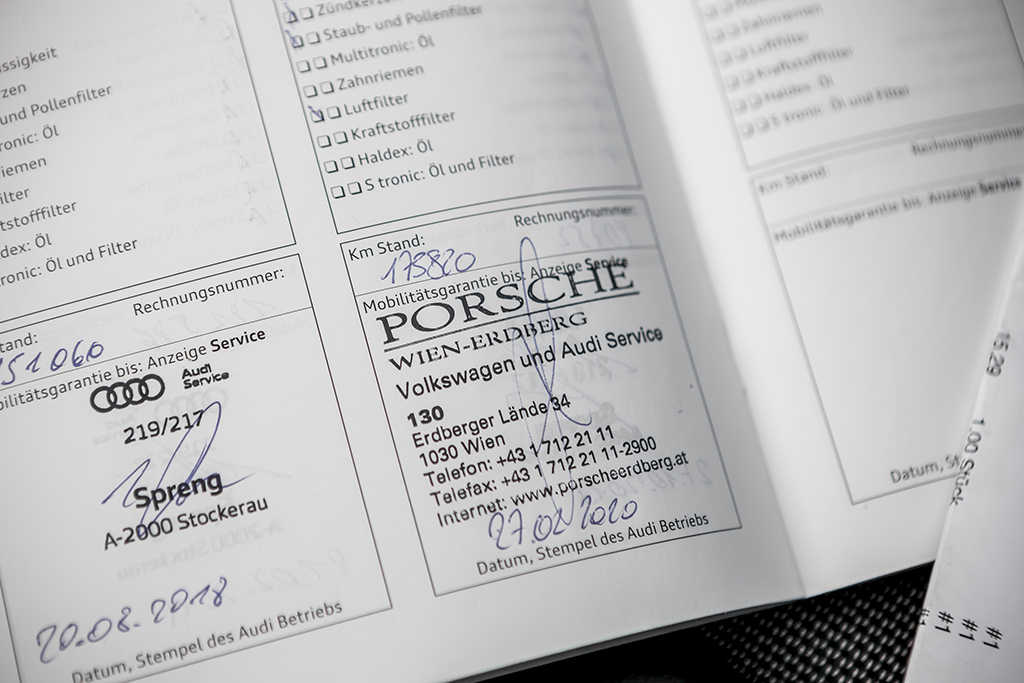 ssigkeit
zen
und Pollenfilter
ronic: Öl
iemen
ilter
tstofffilter
ldex: Öl
ronic: Öl und Filter
Rechnungsnummer:
tand:
51060
bilitätsgarantie bis: Anzeige Service
Audi
Service
219/217
Spreng
A-2000 Stockerau
20.08.2018
Datum, Stempel des Audi Betriebs
Zündkerz
Staub- und Pollenfilter
Multitronic: Öl
Zahnriemen
Luftfilter
Kraftstofffilter
Haldex: Öl
S tronic: Öl und Filter
Rechnungsnummer:
Km Stand:
173820
Mobilitätsgarantie bis: Anzeige Service
PORSCHE
WIEN-ERDBERG
Volkswagen und Audi Service
130
Erdberger Lände 34
1030 Wien
Telefon: +43 1 712 21 11
Telefax: +43 1 712 21 11-2900
Internet: www.porscheerdberg.at
27.02 2020
Datum, Stempel des Audi Betriebs
Zahnriemen
Luftfilter
Kraftstofffilter
Haldex: Öl
S tronic: Öl und Filter
Rechnungsnumme
Km Stand:
Mobilitätsgarantie bis: Anzeige Service
Datum, St
15,29
1,00 Stück
#1
#1
#1
#1